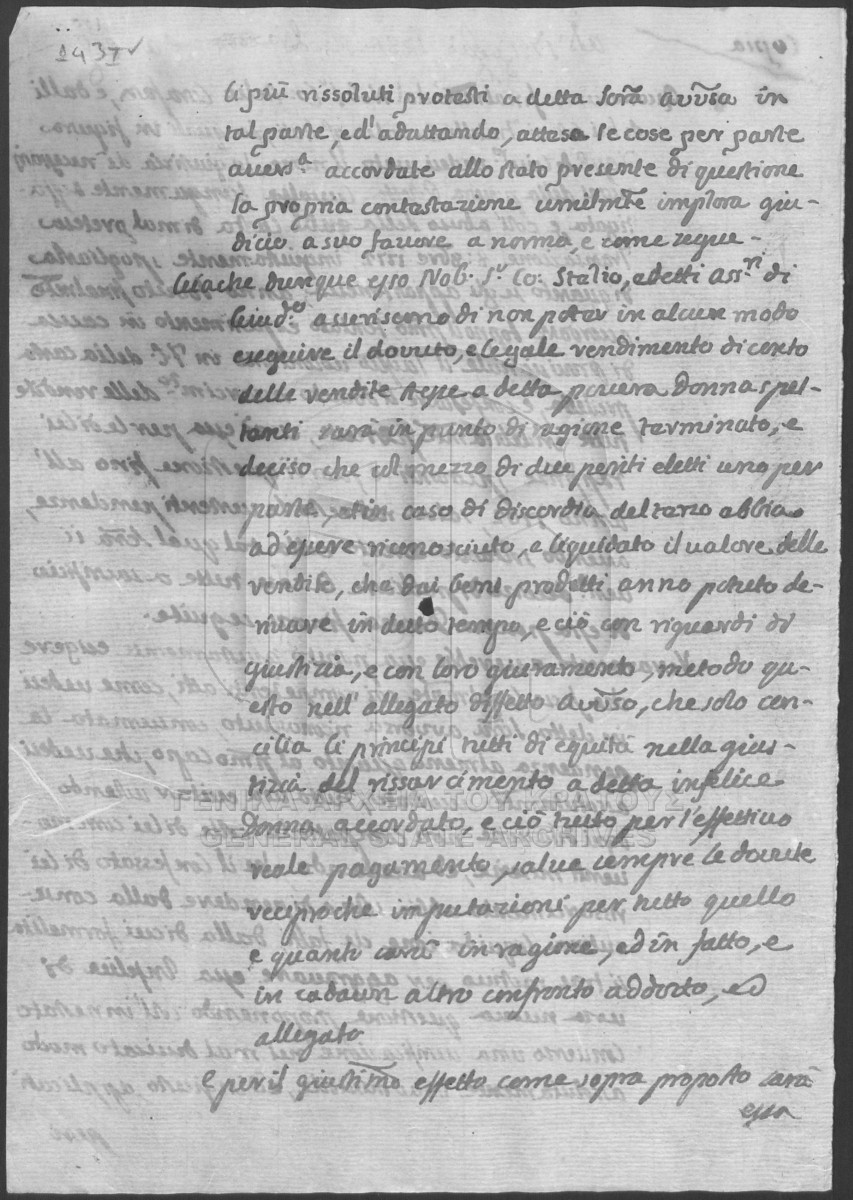 1437
li più rissoluti protesti a detta Sorã avv̄sa in
tal parte, ed' adattando, attese le cose per parte
avers.a accordate allo stato presente di questione
la propria contestazione umilm̃te implora giu-
dicio a suo favore a norma, e come segue-
che dunque esso Nob: S.r Co: Stalio, e detti Ass.ri di
Giud.o asseriscono di non poter in alcun modo
eseguire il dovuto, e legale rendimento di conto
delle rendite stesse a detta povera Donna spet-
tanti sarà in punto di ragione terminato, e
deciso che col mezzo di due periti eletti uno per
parte, et in caso di discordia del terzo abbia
ad essere riconosciuto, e liquidato il valore delle
rendite, che dai beni prodetti anno potuto de-
rivare in detto tempo, e ciò con riguardi di
giustizia, e con loro giuramento, metodo qu-
esto nell' allegato diffetto avv̄so, che solo con-
cilia li principi tutti di equità nella gius-
tizia del rissarcimento a detta infelice
Donna accordato, e ciò tutto per l'effettivo
reale pagamento, salve sempre le dovute
reciproche imputazioni per tutto quello
e quanti sarà in ragione, ed in fatto, e
in cadaun altro confronto addotto, ed
allegato
E per il giustissimo effetto come sopra proposto sarà
essa
ΓΕΝΙΚΑ ΑΡΧΕΙΑ ΤΟΥ ΚΡΑΤΟΥΣ
GENERAL STATE ARCHIVES